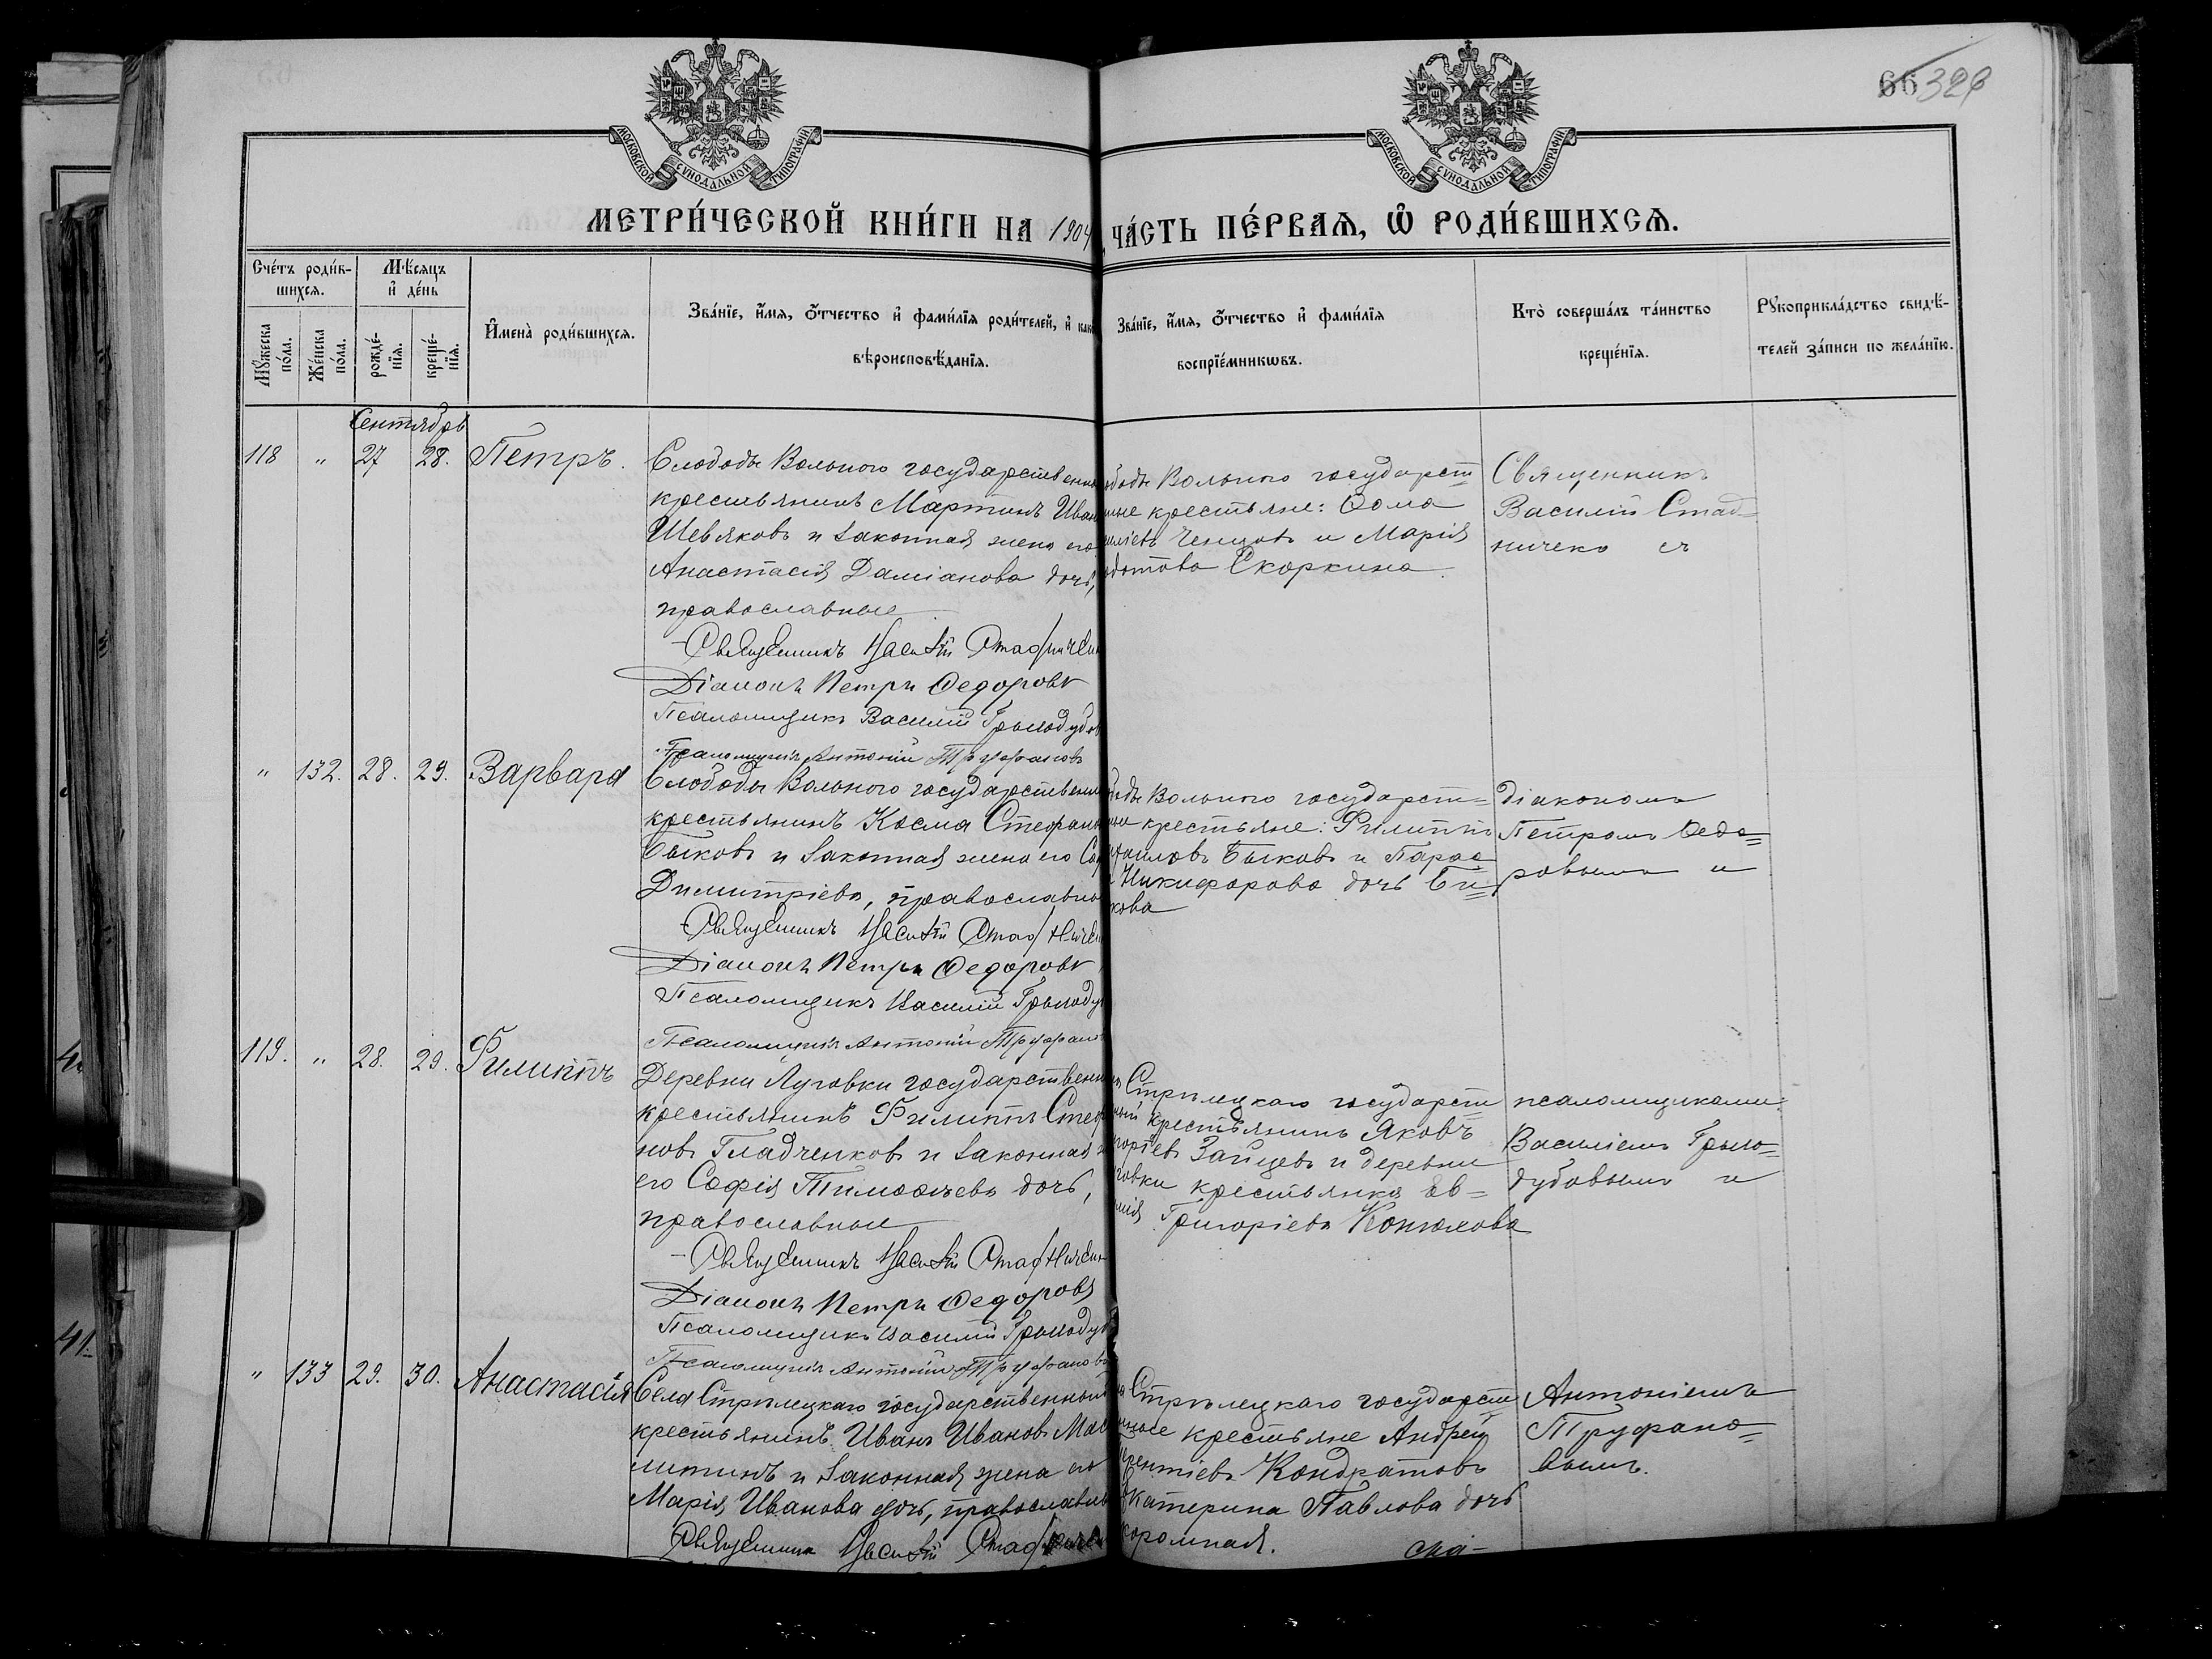 66 326
МОСКОВСКОЙ СУНОДАЛЬНОЙ ТИПОГРАФІИ
МОСКОВСКОЙ СУНОДАЛЬНОЙ ТИПОГРАФІИ
МЕТРИ́ЧЕСКОЙ КНИ́ГИ НА 1904 ЧА́СТЬ ПЕ́РВАѦ, Ѡ҆ РОДИ́ВШИХСѦ.
Сче́тъ роди́в-
шихсѧ.
Мѣ́сѧцъ
и҆ де́нь
Мꙋ́жеска по́ла.
Же́нска по́ла.
рожде́-
нїѧ.
креще́-
нїѧ.
И҆мена̀ роди́вшихсѧ.
Зва́нїе, и҆́мѧ, ѻ҆́тчество и҆ фами́лїѧ роди́телей, и҆ как
вѣроисповѣ́данїѧ.
Зва́нїе, и҆́мѧ, ѻ҆́тчество и҆ фами́лїѧ
воспрїе́мникѡвъ.
Кто̀ соверша́лъ та́инство
креще́нїѧ.
Рꙋкоприкла́дство свидѣ́-
телей за́писи по жела́нїю.
Сентябрь
118 " 27 28. Петръ.
Слободы Вольного государственн
крестьянинъ Мартинъ Иван
Шевяковъ и законная жена его
Анастасія Даміанова дочь,
православные
Священникъ Василій Стадничен
Діаконъ Петръ Федоровъ
Псаломщикъ Василій Грымодубов
Псаломщикъ Антоній Труфановъ
ободы Вольного государст=
ные крестьяне: Ѳома
иліевъ Ченцовъ и Марія
едотова Скоркина.
Священникъ
Василій Стад=
ниченко съ
" 132. 28. 29. Варвара
Слободы Вольного государственн
крестьянинъ Косма Стефано
Быковъ и законная жена его Со
Димитріева, православны
Священникъ Василій Стадничен
Діаконъ Петръ Федоровъ
Псаломщикъ Василій Грымоду
Псаломщикъ Антоній Труфано
боды Вольного государст=
ные крестьяне: Филиппъ
хаиловъ Быковъ и Парас
Никифорова дочь Бы=
кова
діакономъ
Петромъ Ѳедо=
ровымъ и
119. " 28. 29. Филиппъ
Деревни Луговки государственн
крестьянинъ Филиппъ Стеф
новъ Гладченковъ и законная ж
его Софія Тимоѳеева дочь,
православные
Священникъ Василій Стадничен
Діаконъ Петръ Федоровъ
Псаломщикъ Василій Грымодуб
Псаломщикъ Антоній Труфанов
Стрѣлецкаго государст
ный крестьянинъ Яковъ
горіевъ Зайцевъ и деревни
говки крестьянка Ев=
мія Григоріева Конюхова
псаломщиками:
Василіемъ Грымо=
дубовымъ и
" 133 29. 30. Анастасія
Села Стрѣлецкаго государственный
крестьянинъ Иванъ Ивановъ Мас
литинъ и законная жена его
Марія Иванова дочь, православны
Священникъ Василій Стадничен
Стрѣлецкаго государст
ные крестьяне Андрей
рентіевъ Кондратовъ
Екатерина Павлова дочь
коромная.
Антоніемъ
Труфано=
вымъ.